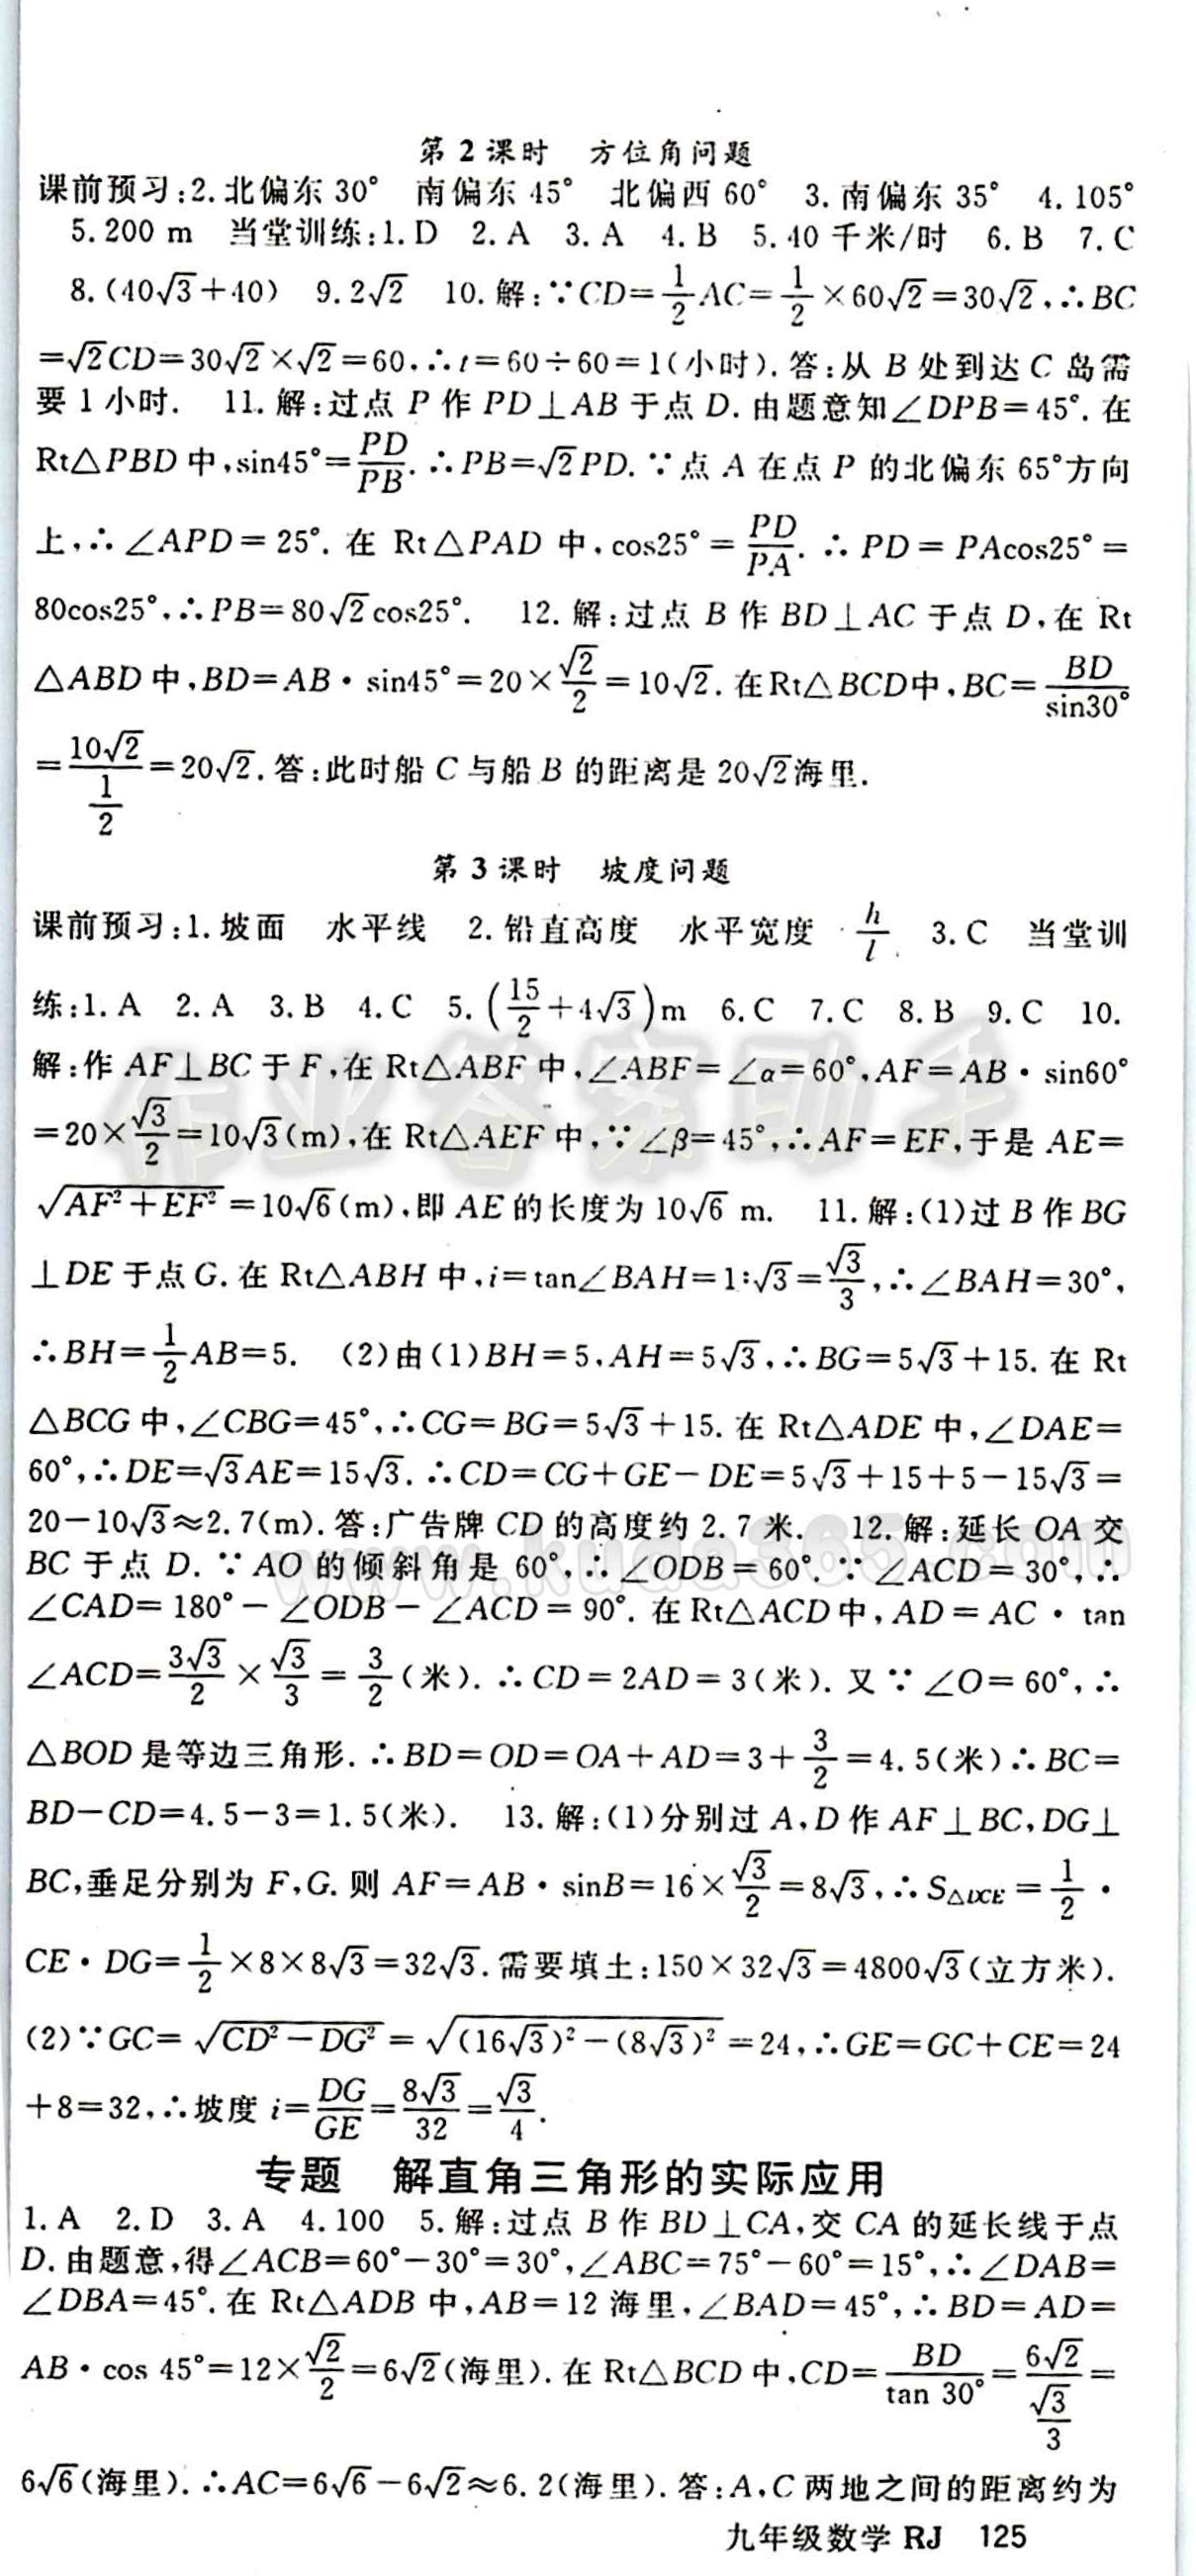 第2课时　方位角问题
课前预习:2.北偏东30°　南偏东45°　北偏西60°　3.南偏东35°　4.105°
5.200 m　当堂训练:1.D　2.A　3.A　4.B　5.40千米/时　6.B　7.C
8.(40√3+40)　9.2√2　10.解:∵CD=1/2AC=1/2×60√2=30√2,∴BC
=√2CD=30√2×√2=60.∴t=60÷60=1(小时).答:从B处到达C岛需
要1小时.　11.解:过点P作PD⊥AB于点D.由题意知∠DPB=45°.在
Rt△PBD中,sin45°=PD/PB.∴PB=√2PD.∵点A在点P的北偏东65°方向
上,∴∠APD=25°.在Rt△PAD中,cos25°=PD/PA.∴PD=PAcos25°=
80cos25°,∴PB=80√2cos25°.　12.解:过点B作BD⊥AC于点D,在Rt
△ABD中,BD=AB·sin45°=20×√2/2=10√2.在Rt△BCD中,BC=BD/sin30°
=10√2/(1/2)=20√2.答:此时船C与船B的距离是20√2海里.
第3课时　坡度问题
课前预习:1.坡面　水平线　2.铅直高度　水平宽度　h/l　3.C　当堂训
练:1.A　2.A　3.B　4.C　5.(15/2+4√3)m　6.C　7.C　8.B　9.C　10.
解:作AF⊥BC于F,在Rt△ABF中,∠ABF=∠α=60°,AF=AB·sin60°
=20×√3/2=10√3(m),在Rt△AEF中,∵∠β=45°,∴AF=EF,于是AE=
√(AF²+EF²)=10√6(m),即AE的长度为10√6 m.　11.解:(1)过B作BG
⊥DE于点G.在Rt△ABH中,i=tan∠BAH=1:√3=√3/3,∴∠BAH=30°,
∴BH=1/2AB=5.　(2)由(1)BH=5,AH=5√3,∴BG=5√3+15.在Rt
△BCG中,∠CBG=45°,∴CG=BG=5√3+15.在Rt△ADE中,∠DAE=
60°,∴DE=√3AE=15√3.∴CD=CG+GE-DE=5√3+15+5-15√3=
20-10√3≈2.7(m).答:广告牌CD的高度约2.7米.　12.解:延长OA交
BC于点D.∵AO的倾斜角是60°,∴∠ODB=60°.∵∠ACD=30°,∴
∠CAD=180°-∠ODB-∠ACD=90°.在Rt△ACD中,AD=AC·tan
∠ACD=3√3/2×√3/3=3/2(米).∴CD=2AD=3(米).又∵∠O=60°,∴
△BOD是等边三角形.∴BD=OD=OA+AD=3+3/2=4.5(米)∴BC=
BD-CD=4.5-3=1.5(米).　13.解:(1)分别过A,D作AF⊥BC,DG⊥
BC,垂足分别为F,G.则AF=AB·sinB=16×√3/2=8√3,∴S△DCE=1/2·
CE·DG=1/2×8×8√3=32√3.需要填土:150×32√3=4800√3(立方米).
(2)∵GC=√(CD²-DG²)=√((16√3)²-(8√3)²)=24,∴GE=GC+CE=24
+8=32,∴坡度i=DG/GE=8√3/32=√3/4.
专题　解直角三角形的实际应用
1.A　2.D　3.A　4.100　5.解:过点B作BD⊥CA,交CA的延长线于点
D.由题意,得∠ACB=60°-30°=30°,∠ABC=75°-60°=15°,∴∠DAB=
∠DBA=45°.在Rt△ADB中,AB=12海里,∠BAD=45°,∴BD=AD=
AB·cos 45°=12×√2/2=6√2(海里).在Rt△BCD中,CD=BD/tan 30°=6√2/(√3/3)=
6√6(海里).∴AC=6√6-6√2≈6.2(海里).答:A,C两地之间的距离约为
九年级数学RJ　125
作业答案助手
www.kuda365.com